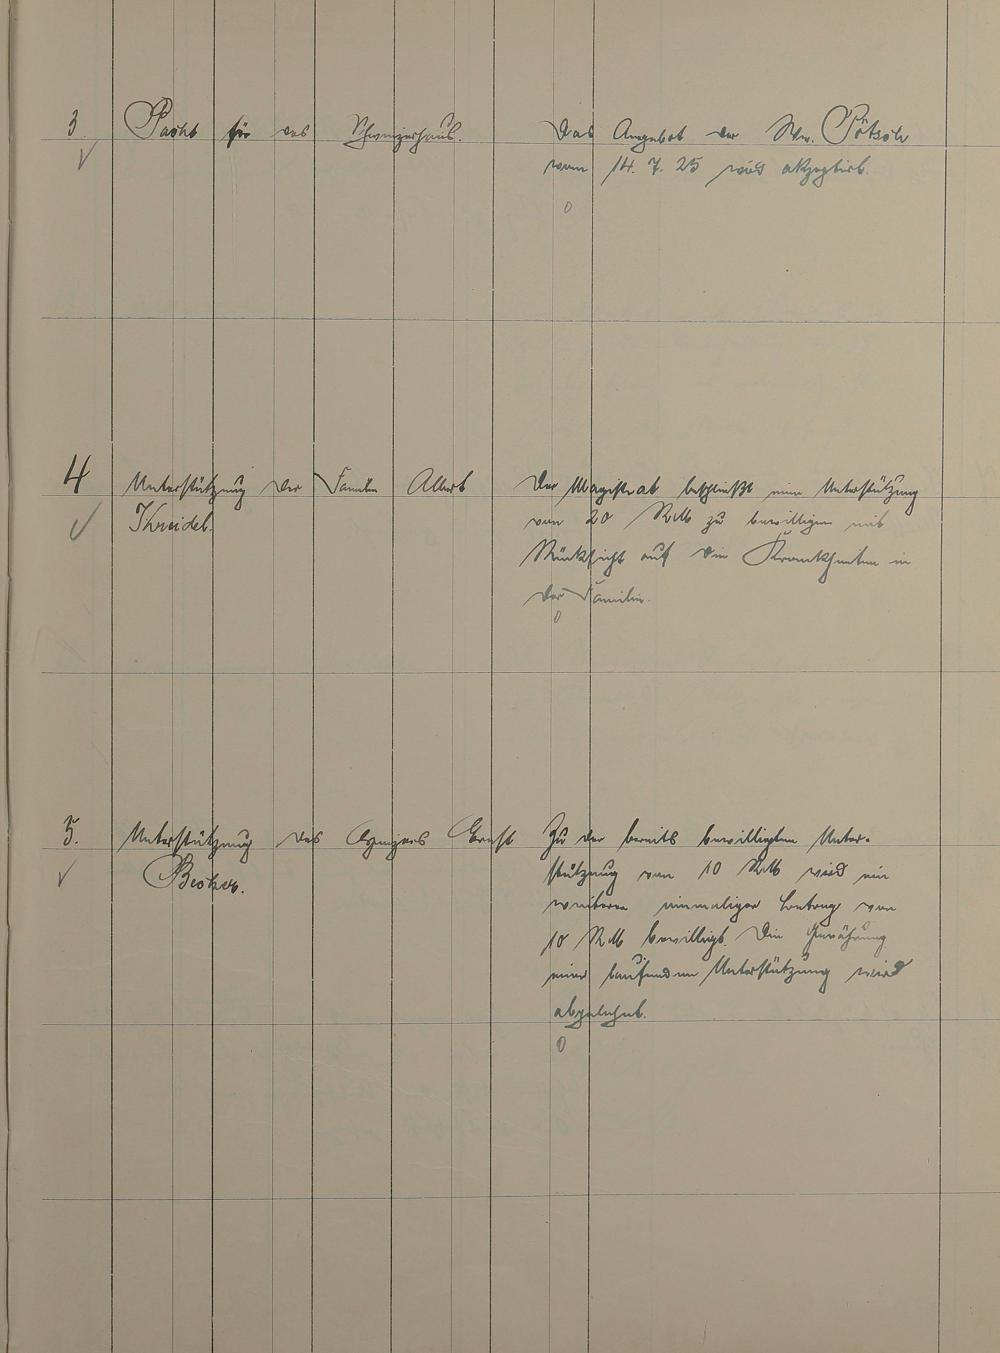 3. Pacht für das Schweizerhaus. Das Angebot der Ww. Pötsch
vom 14. 7. 25 wird akzeptiert.
4 Unterstützung der Familie Albert Der Magistrat beschließt eine Unterstützung
Kreidel. von 20 RM zu bewilligen mit
Rücksicht auf die Krankheiten in
der Familie.
5. Unterstützung des Ernst Zu der bereits bewilligten Unter-
Becker. stützung von 10 RM wird ein
weiterer einmaliger Betrag von
10 RM bewilligt. Die Gewährung
einer laufenden Unterstützung wird
abgelehnt.